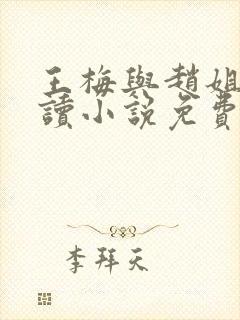 王梅與趙姐
讀小說免費
李拜天